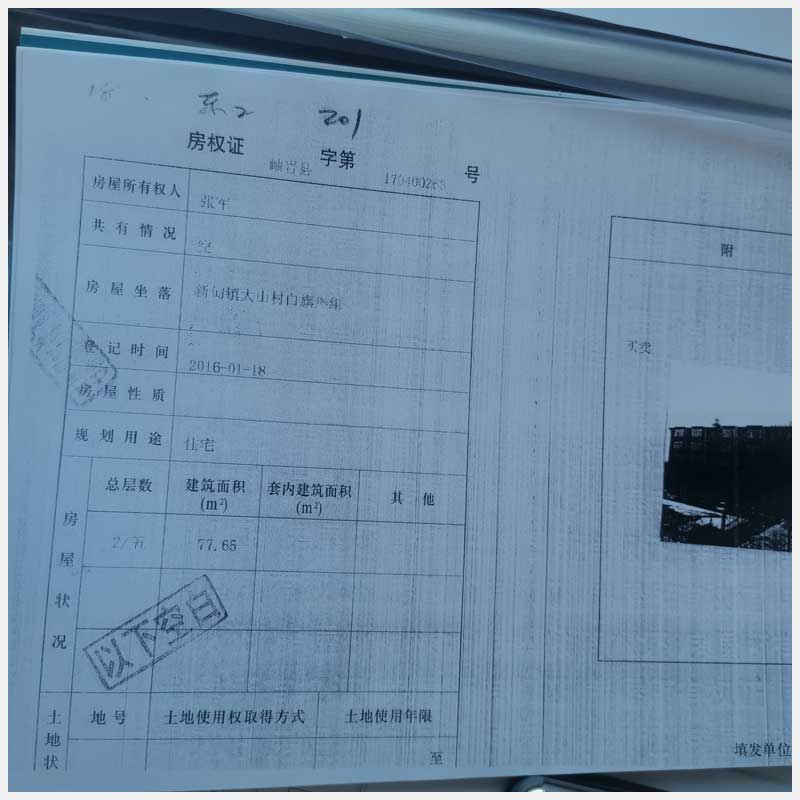 东2 201
房权证 岫岩县 字第 号
房屋所有权人 张军
共有情况
房屋坐落
登记时间 2016-01-18
房屋性质
规划用途 住宅
房屋状况
总层数 建筑面积(m²) 套内建筑面积(m²) 其他
2/五 77.65
以下空白
土地状
地号 土地使用权取得方式 土地使用年限
至
附
买卖
填发单位